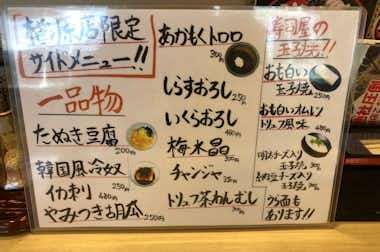 橿原店限定
サイドメニュー!!
一品物
たぬき豆腐
200円
韓国風冷奴
250円
イカ刺り
480円
やみつき胡瓜 250円
あかもくトロロ
300円
しらすおろし
250円
いくらおろし
480円
梅水晶
300円
チャンジャ
350円
トリュフ茶わんむし
寿司屋の
玉子焼!!
おも白い
玉子焼
250円
おも白いオムレツ
トリュフ風味
480円
明太チーズ入り
玉子焼
納豆チーズ入り
玉子焼
ウラ面も
あります!!